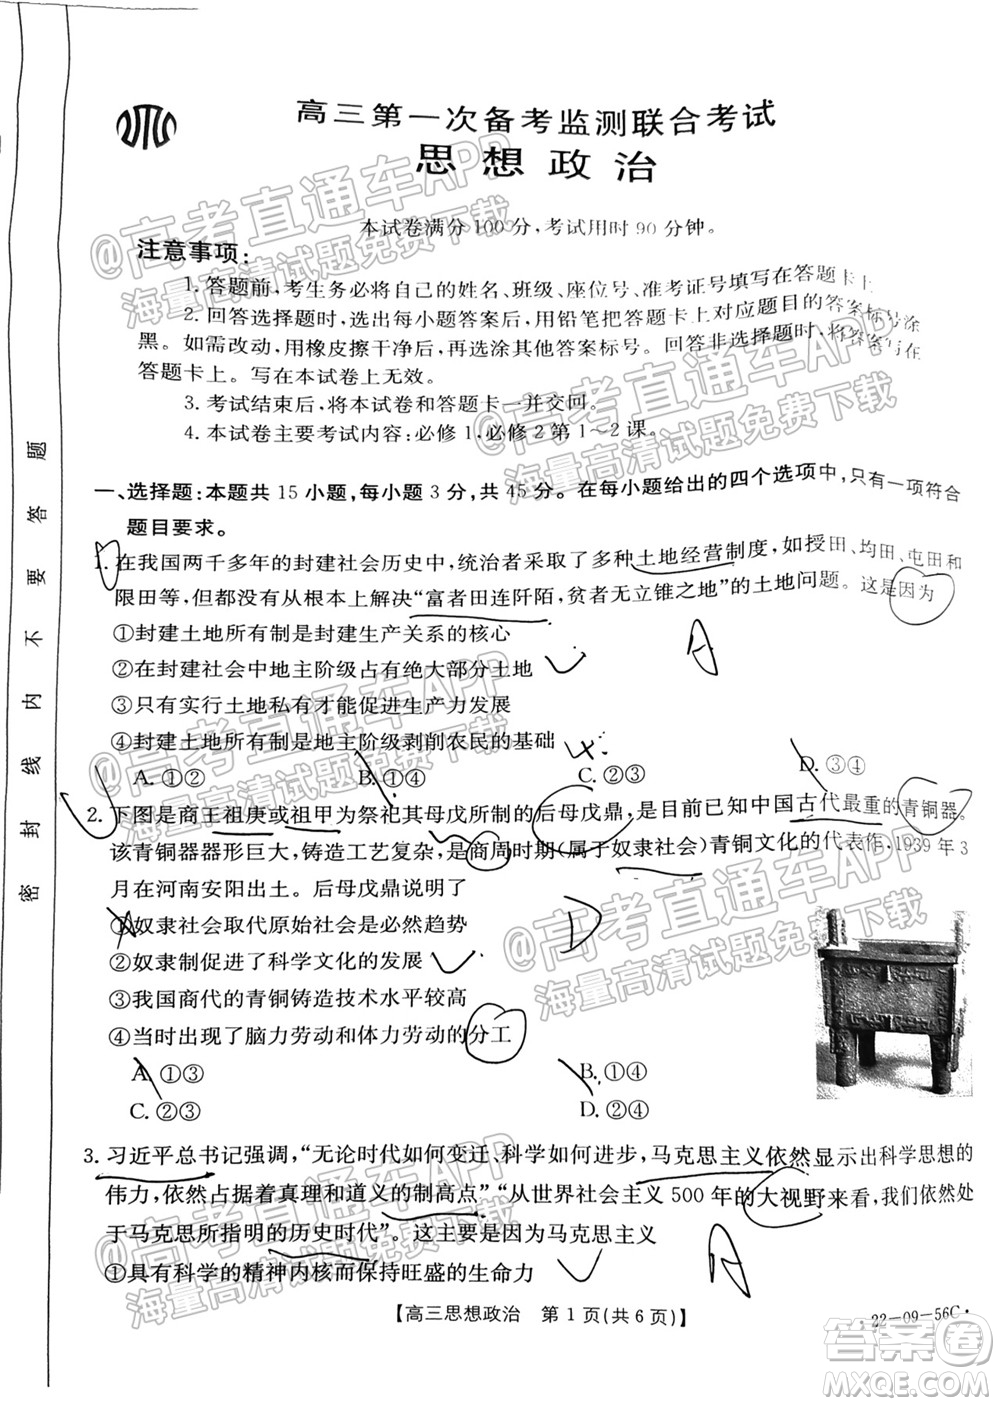 高三第一次备考监测联合考试
思想政治
本试卷满分100分,考试用时90分钟。
注意事项:
1. 答题前,考生务必将自己的姓名、班级、座位号、准考证号填写在答题卡上
2. 回答选择题时,选出每小题答案后,用铅笔把答题卡上对应题目的答案标号涂
黑。如需改动,用橡皮擦干净后,再选涂其他答案标号。回答非选择题时,将答案写在
答题卡上。写在本试卷上无效。
3. 考试结束后,将本试卷和答题卡一并交回。
4. 本试卷主要考试内容:必修1,必修2第1~2课。
一、选择题:本题共15小题,每小题3分,共45分。在每小题给出的四个选项中,只有一项符合
题目要求。
1. 在我国两千多年的封建社会历史中,统治者采取了多种土地经营制度,如授田、均田、屯田和
限田等,但没有从根本上解决“富者田连阡陌,贫者无立锥之地”的土地问题。这是因为
①封建土地所有制是封建生产关系的核心
②在封建社会中地主阶级占有绝大部分土地
③只有实行土地私有才能促进生产力发展
④封建土地所有制是地主阶级剥削农民的基础
A. ①② B. ①④ C. ②③ D. ③④
2. 下图是商王祖庚或祖甲为祭祀其母戊所制的后母戊鼎,是目前已知中国古代最重的青铜器。
该青铜器器形巨大,铸造工艺复杂,是商周时期(属于奴隶社会)青铜文化的代表作,1939年3
月在河南安阳出土。后母戊鼎说明了
①奴隶社会取代原始社会是必然趋势
②奴隶制促进了科学文化的发展
③我国商代的青铜铸造技术水平较高
④当时出现了脑力劳动和体力劳动的分工
A. ①③ B. ①④
C. ②③ D. ②④
3. 习近平总书记强调,“无论时代如何变迁、科学如何进步,马克思主义依然显示出科学思想的
伟力,依然占据着真理和道义的制高点”“从世界社会主义500年的大视野来看,我们依然处
于马克思所指明的历史时代”。这主要是因为马克思主义
①具有科学的精神内核而保持旺盛的生命力
【高三思想政治 第1页(共6页)】
·22-09-56C·
密封线内不要答题
@高考直通车APP
海量高清试题免费下载
@高考直通车APP
海量高清试题免费下载
@高考直通车APP
海量高清试题免费下载
@高考直通车APP
海量高清试题免费下载
@高考直通车APP
海量高清试题免费下载
A
D
A
答案圈
MXQE.COM